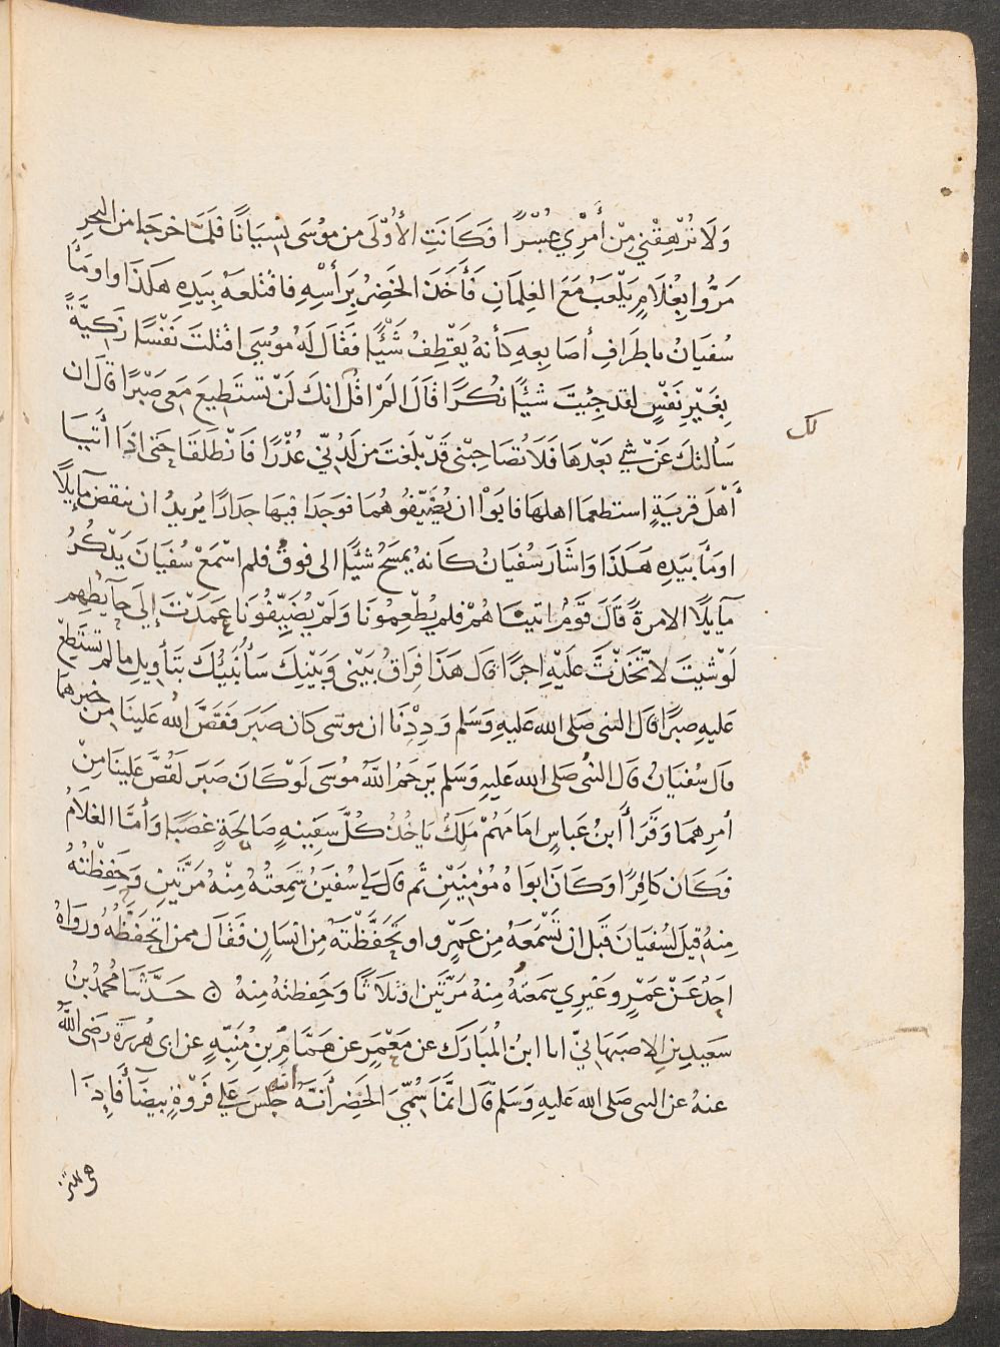 وَلَا تُرْهِقْنِي مِنْ أَمْرِي عُسْرًا فَكَانَتِ الأُوْلَى مِن مُوْسَى نِسيَانًا فَلَمَّا خرَجَا من البحرِ
مَرُّوا بِغُلَامٍ يَلْعَبُ مَعَ الغِلمَانِ فَأَخَذَ الخَضِرُ بِرَأسْهِ فاقْتلعَهُ بِيَدِهِ هكَذَا واومَأَ
سُفيَانُ باطرَافِ أصَابِعِهِ كَأنهُ يَقْطِفُ شَيْئًا فَقَالَ لَهُ مُوسَى اقتلتَ نَفْسًا زَكِيَّةً
بِغَيْرِ نَفْسٍ لقد جِئتَ شيئًا نكُرًا قَالَ الَمْ اقل انكَ لَنْ تَستَطِيعَ مَعِي صَبْرًا قال ان
لك
سَألتكَ عَنْ شيءٍ بَعْدهَا فَلَا تُصَاحِبْنِي قَدْ بَلَغتَ مَن لَدُنِّي عُذْرًا فَانْطَلَقَا حَتى اذا أتَيَا
أَهْلَ قريَةٍ استطعمَا اهلهَا فابَوْا ان يُضَيّفُوهُمَا فوَجَدَا فيهَا جدَارًا يُريدُ ان ينقض مَايلًا
اومَأَ بيَدِهِ هَكَذَا وَاشَارَ سُفيَانُ كانهُ يمسَحُ شيْئًا الى فوقُ فلم اسْمَعْ سُفيَانَ يَذْكُرُ
مَايلًا الامرةً قَالَ قَوْمٌ اتيناهُمْ فلم يُطْعِمُونَا وَلَمْ يُضَيِّفُونَا عَمَدْتَ إلَى حآيُطِهِم
لَوْ شيتَ لاتّخَذْتَ عَلَيْهِ اجرًا قال هَذَا فِرَاقُ بَيْنِي وَبَيْنِكَ سَأُنَبئُكَ بتَأويلِ ما لم تستَطِعْ
عَليهِ صبرًا قال النبى صَلى الله عَليهِ وَسَلم وَدِدْنَا ان موسى كان صَبَر فَقَصَّ الله عَلينَا من خبرهمَا
قال سُفيَانُ قال النبىُ صَلى الله عَليهِ وَسَلم يَرحَمُ اللهُ مُوسَى لَوْ كَانَ صَبَرَ لَقُصَّ عَلينَا مِنْ
أمرِهمَا وَقَرَأَ ابنُ عَباسٍ امَامَهُمْ مَلكٌ يَاخُذُ كُلَّ سَفِيْنهٍ صَالحَةٍ غصبًا وَأمّا الغلَامُ
فَكَان كافِرًا وَكَانَ ابوَاهُ مؤمِنَيْنِ ثم قال لي سُفيَنُ سَمِعتُهُ مِنْهُ مَرَّتَينِ وَحَفِظْتُهُ
مِنهُ قيلَ لسُفيَانَ قَبل ان تَسْمَعَهُ مِن عَمرٍو او تَحفَّظْتَهُ مِن انسَانٍ فَقَال ممن اتحَفّظُهُ ورَوَاهُ
احَدٌ عَنْ عَمْرٍو غيْرِي سَمعتُهُ مِنهُ مَرّتَين او ثلاثًا وَحَفِظتهُ مِنهُ ۞ حَدَّثَنَا مُحمدُ بنُ
سَعيدِ بنِ الاصبَهَانيّ انا ابنُ المُبَارَك عن مَعْمَرٍ عن هَمَّامِ بنِ مُنَبِّهٍ عن ابى هُرَيرَة رضى اللهُ
عنهُ عن النبى صَلى الله عَليهِ وَسَلم قَالَ انّمَا سُمِّيَ الخَضِر أَنَّهُ انه جَلَسَ عَلي فَرْوَةٍ بيضَآ فَإِذَا
هى تهتز